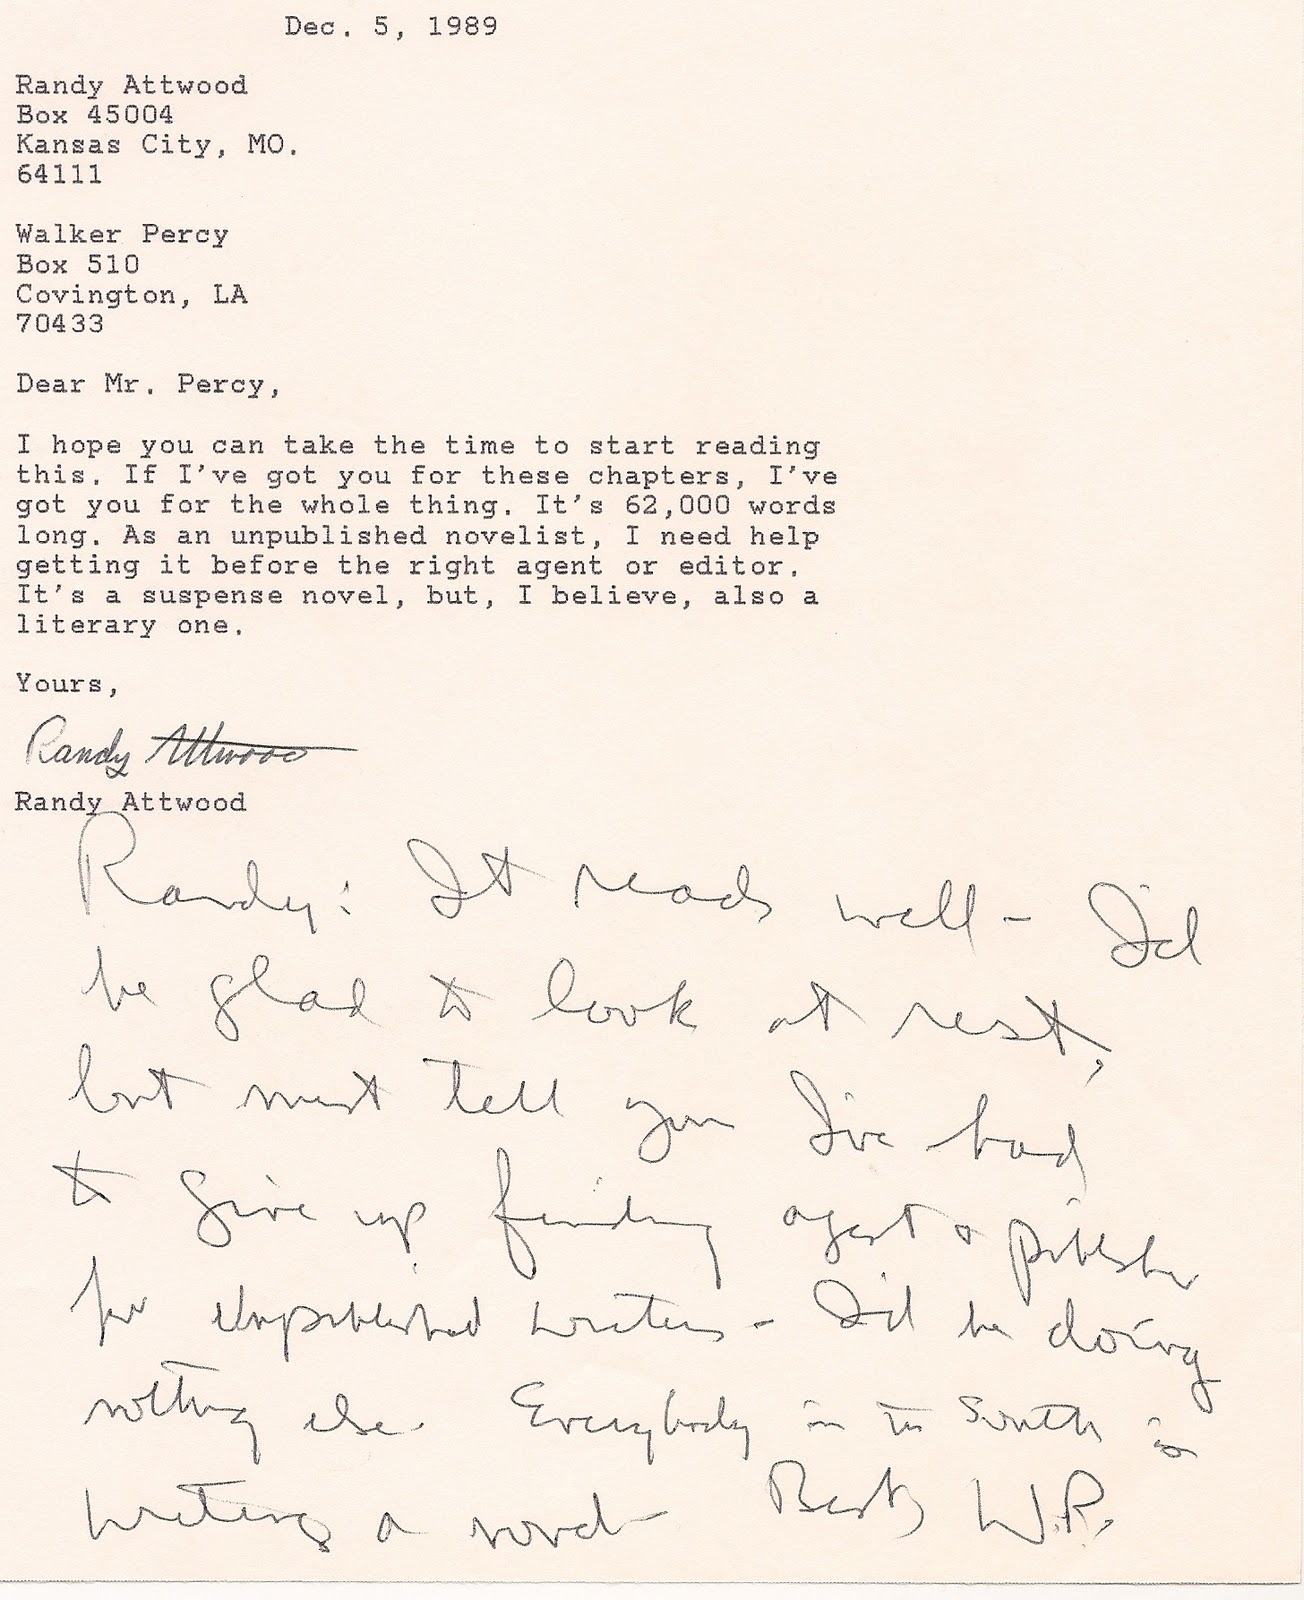 Dec. 5, 1989
Randy Attwood
Box 45004
Kansas City, MO.
64111
Walker Percy
Box 510
Covington, LA
70433
Dear Mr. Percy,
I hope you can take the time to start reading
this. If I've got you for these chapters, I've
got you for the whole thing. It's 62,000 words
long. As an unpublished novelist, I need help
getting it before the right agent or editor.
It's a suspense novel, but, I believe, also a
literary one.
Yours,
Randy Attwood
Randy Attwood
Randy: It reads well - I'd
be glad to look at rest,
but must tell you I've had
to give up finding agent & publisher
for unpublished writers - I'd be doing
nothing else. Everybody in the South is
writing a novel Best, W.P.